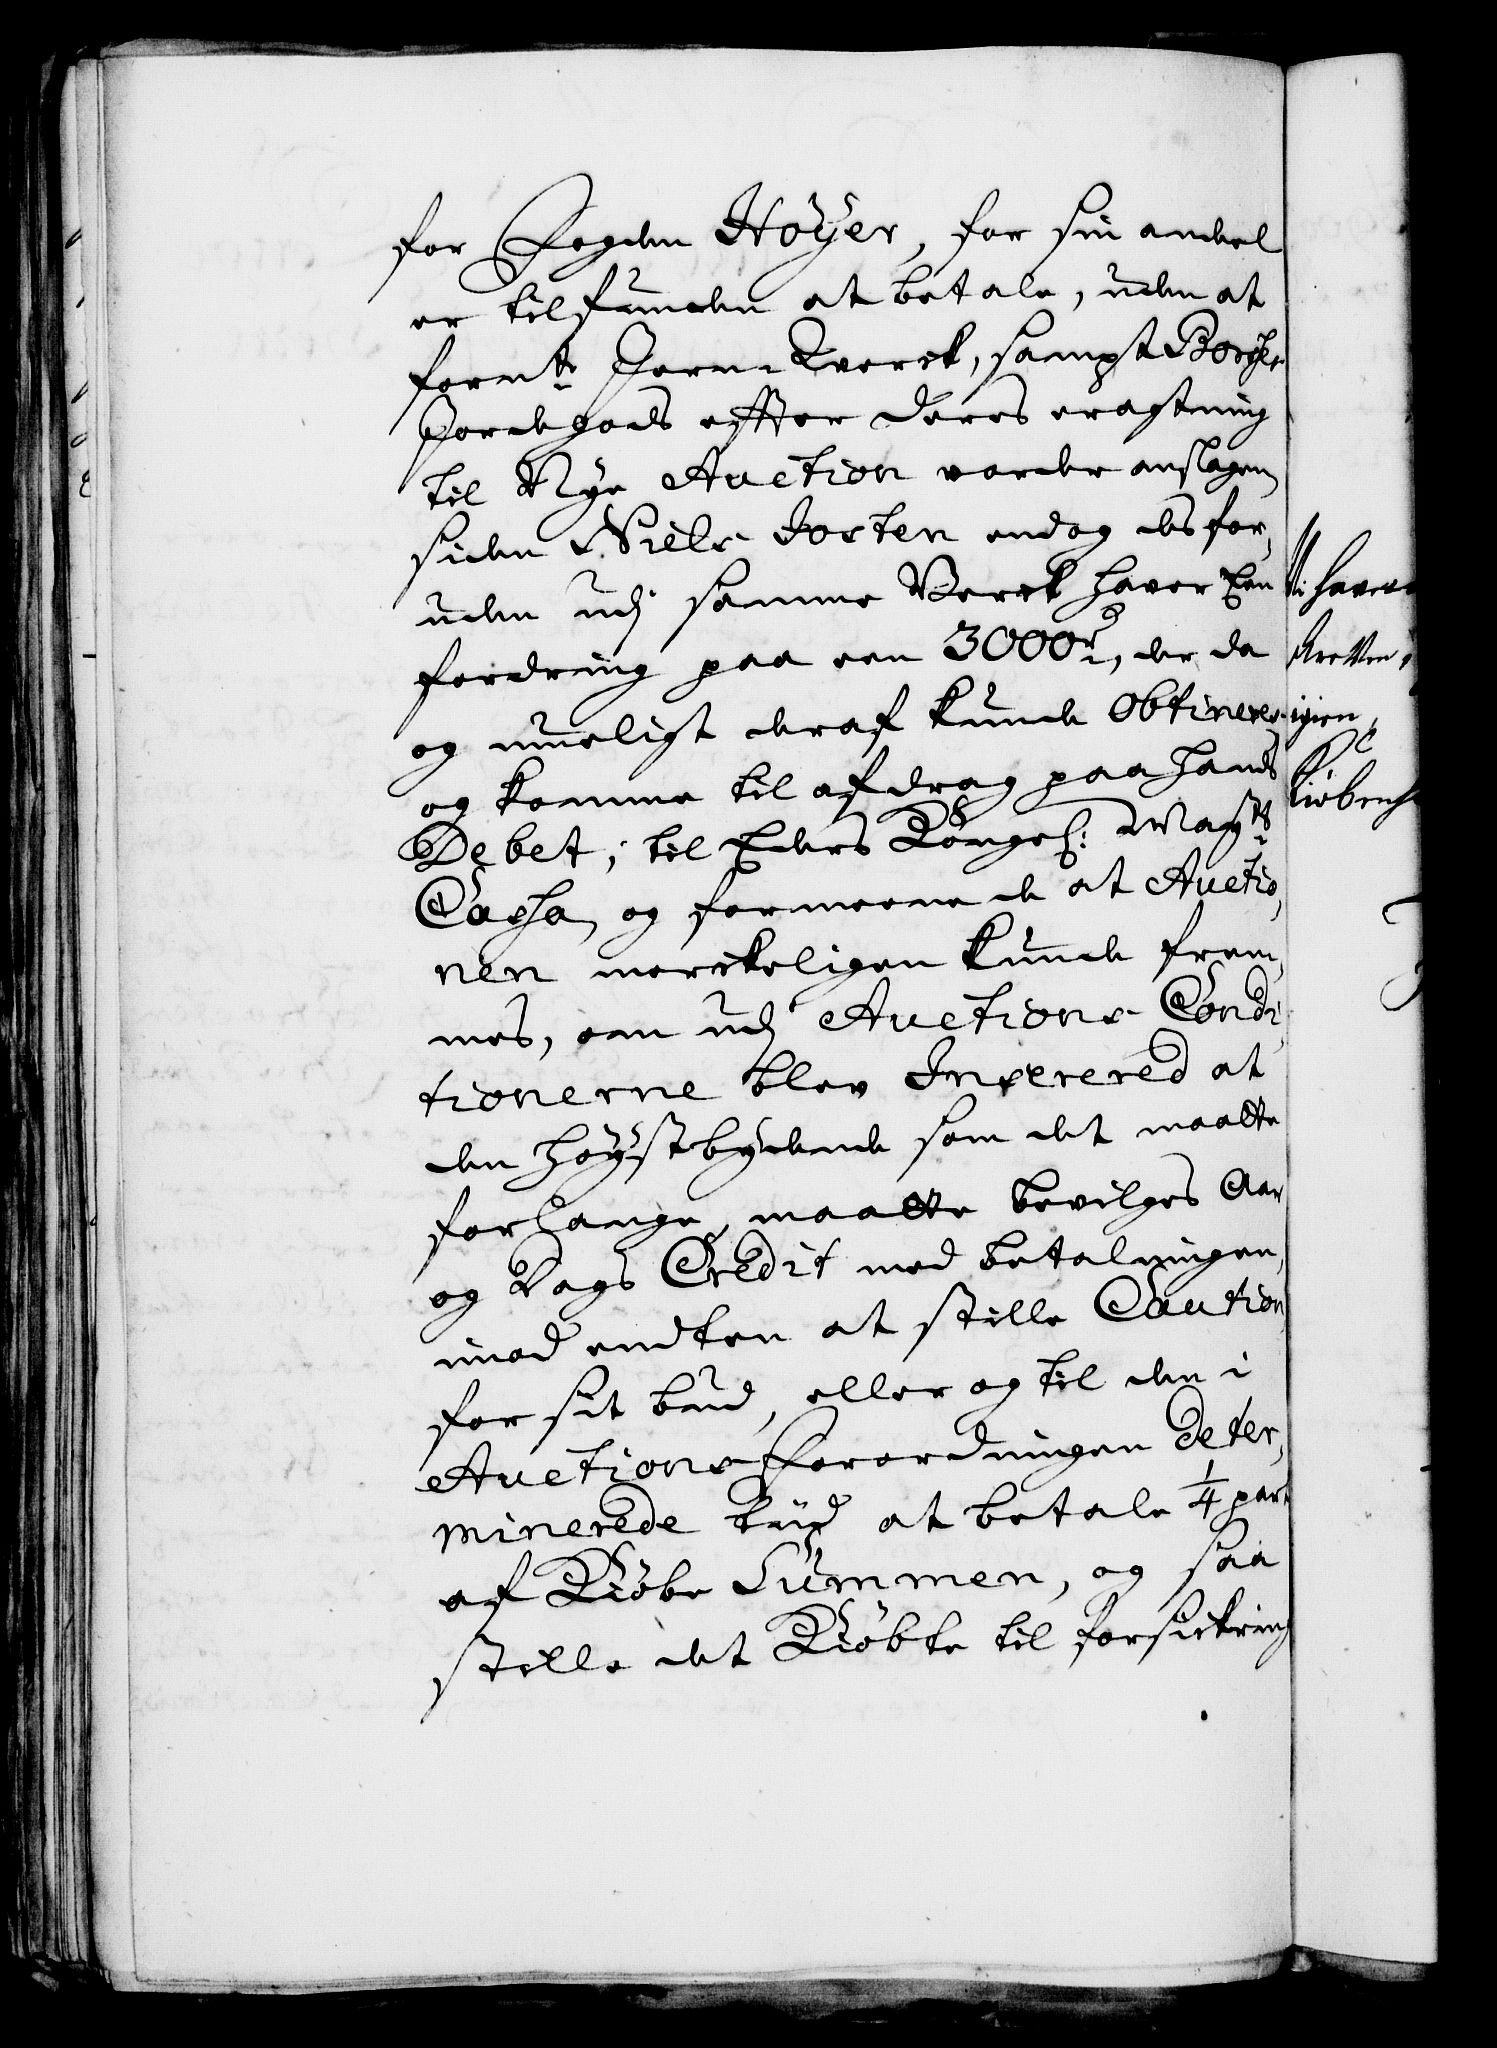 for Fogden Höÿer, for sin andeel
er tilfunden at betale, uden at
formte Jern-Verck, sampt Borgher
Jordegods effter deres eragtning
til Nye Auction worder anslagen
siden Niels Iorten endog desfor,
uden udj samme Verck haver Een
fordring paa een 3000 rd, der da
og mueligt deraf kunde Obtineres
og komme til afdrag paa hands
Debet, til Eders Kongel: Maysts
Cassa, og formeene de at Auctio,
nen merckeligen kunde frem,
mes, om udj Auctions Condi,
tionerne blev Inserered at
den höÿstbÿdende som det maatte
forhange, maatte bevilges Aar
og Dags Credit med betalningen,
imod endten at stille Caution
for sit bud, eller og til den i
Auctions Forordningen deter,
minerede tiid at betale 1/4 part
af Kiöbe Summen, og saa
stille det Kiöbte til forsickring
haver
igien,
Kiöbenh